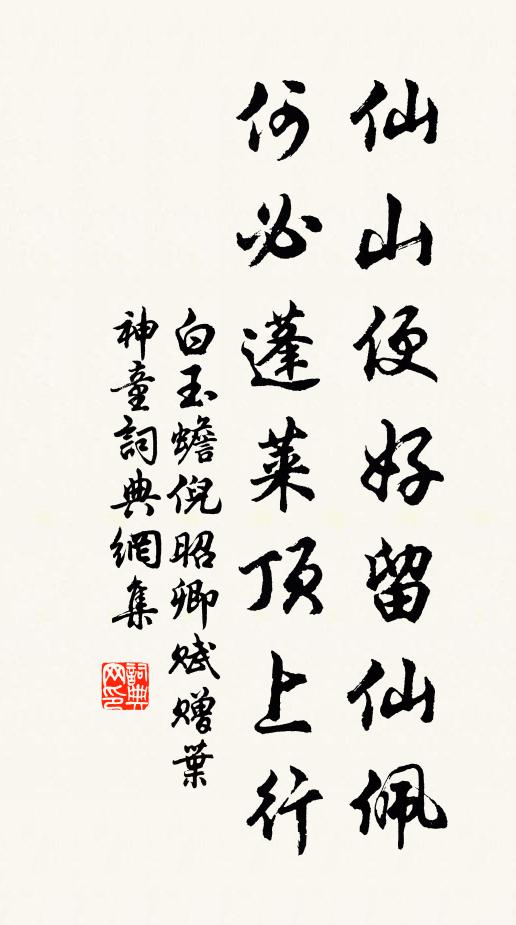 仙山便好留仙佩
何必蓬萊頂上行
白玉蟾倪昭卿賦赠葉
神童詞典網集
詞典网印